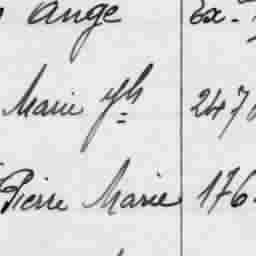 Ange Ex.
Marie Jh 247
Pierre Marie 176